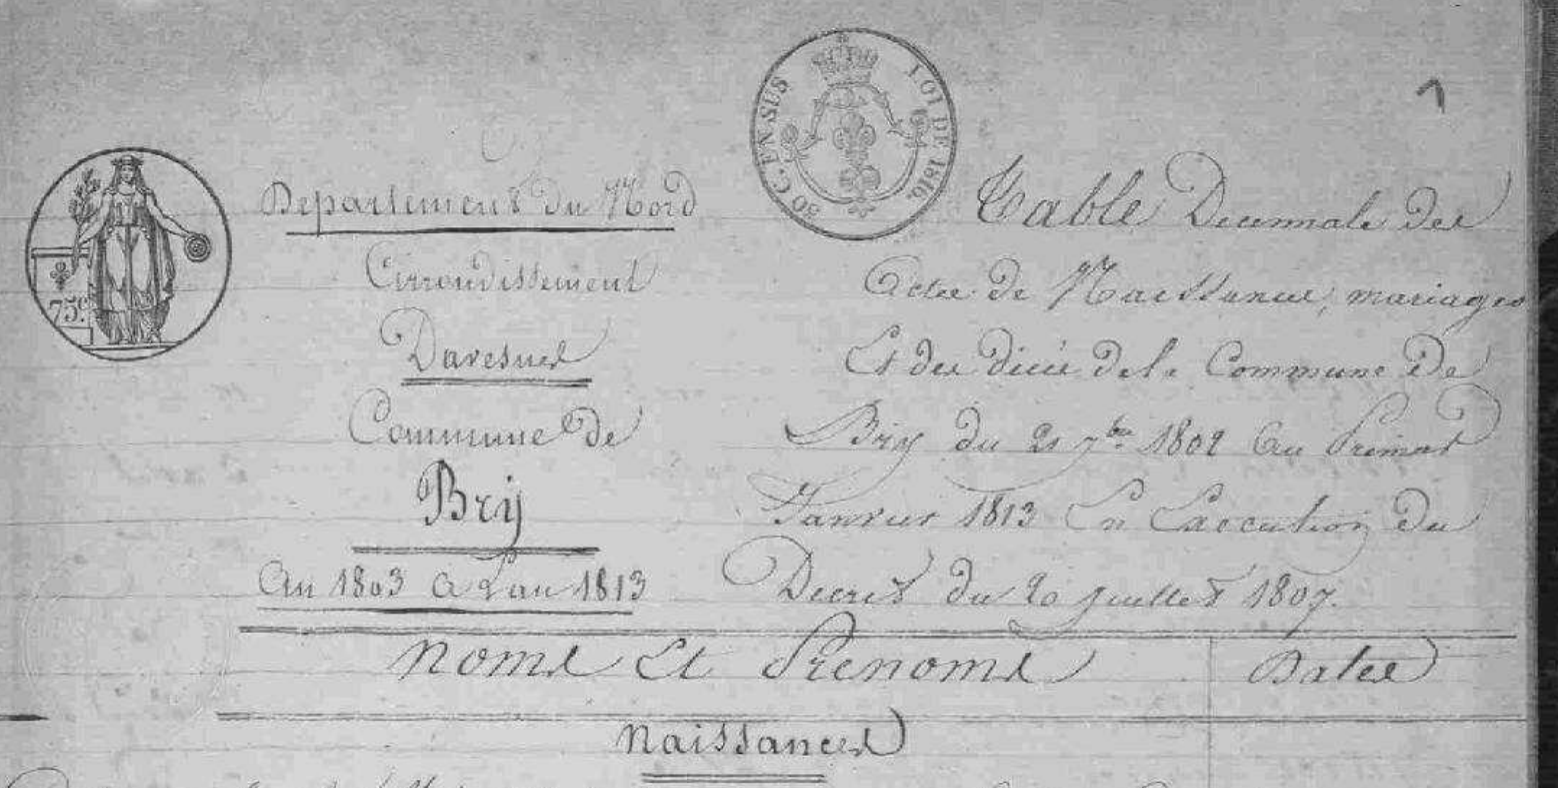 50 C. EN SUS
LOI DE 1816
75c.
Departement du Nord
Arrondissement
Davesnes
Commune de
Bry
An 1803 a Lan 1813
Table Decennale des
Actes de Naissances, mariages
Et des décés de la Commune De
Bry du 21 7bre 1802 Au Premier
Janvier 1813 En Execution du
Decret du 20 juillet 1807.
Noms Et Prenoms
Dates
Naissances